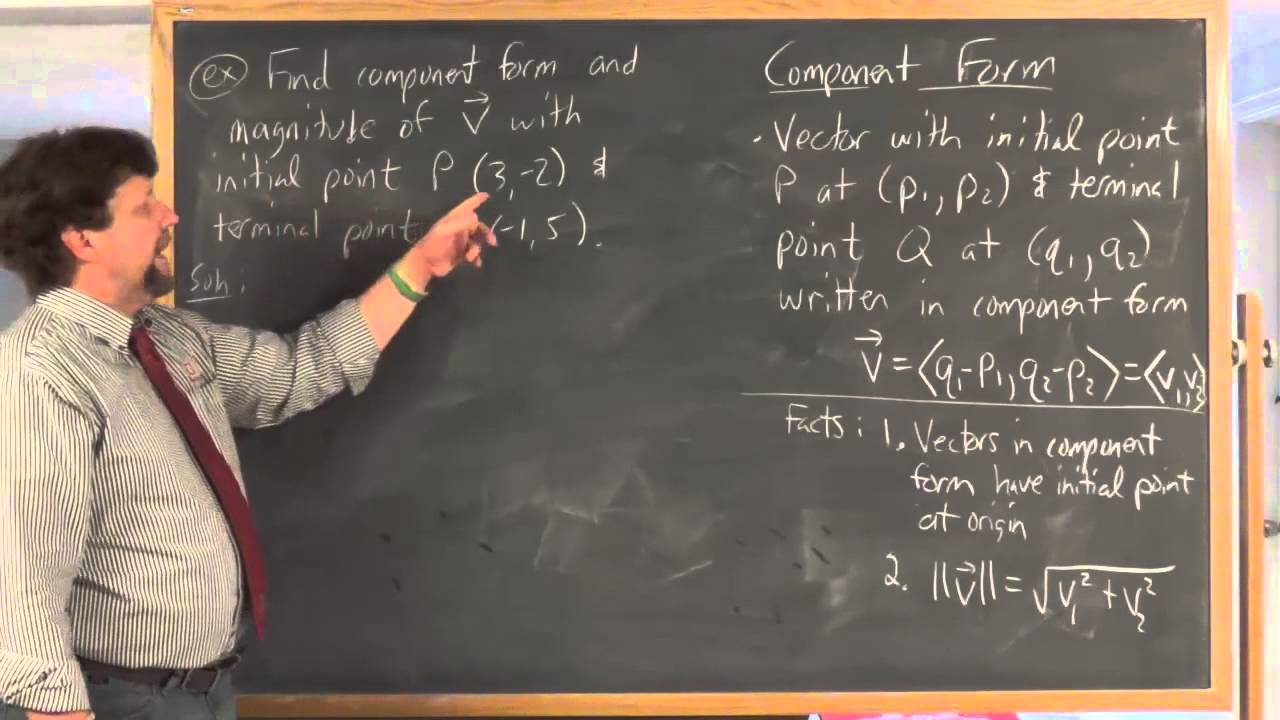 ex Find component form and
magnitude of v⃗ with
initial point P (3,-2) &
terminal point (-1,5).
Soln:
Component Form
• Vector with initial point
P at (p₁,p₂) & terminal
point Q at (q₁,q₂)
written in component form
v⃗ = ⟨q₁-p₁,q₂-p₂⟩=⟨v₁,v₂⟩
Facts: 1. Vectors in component
form have initial point
at origin
2. ||v⃗|| = √v₁² + v₂²